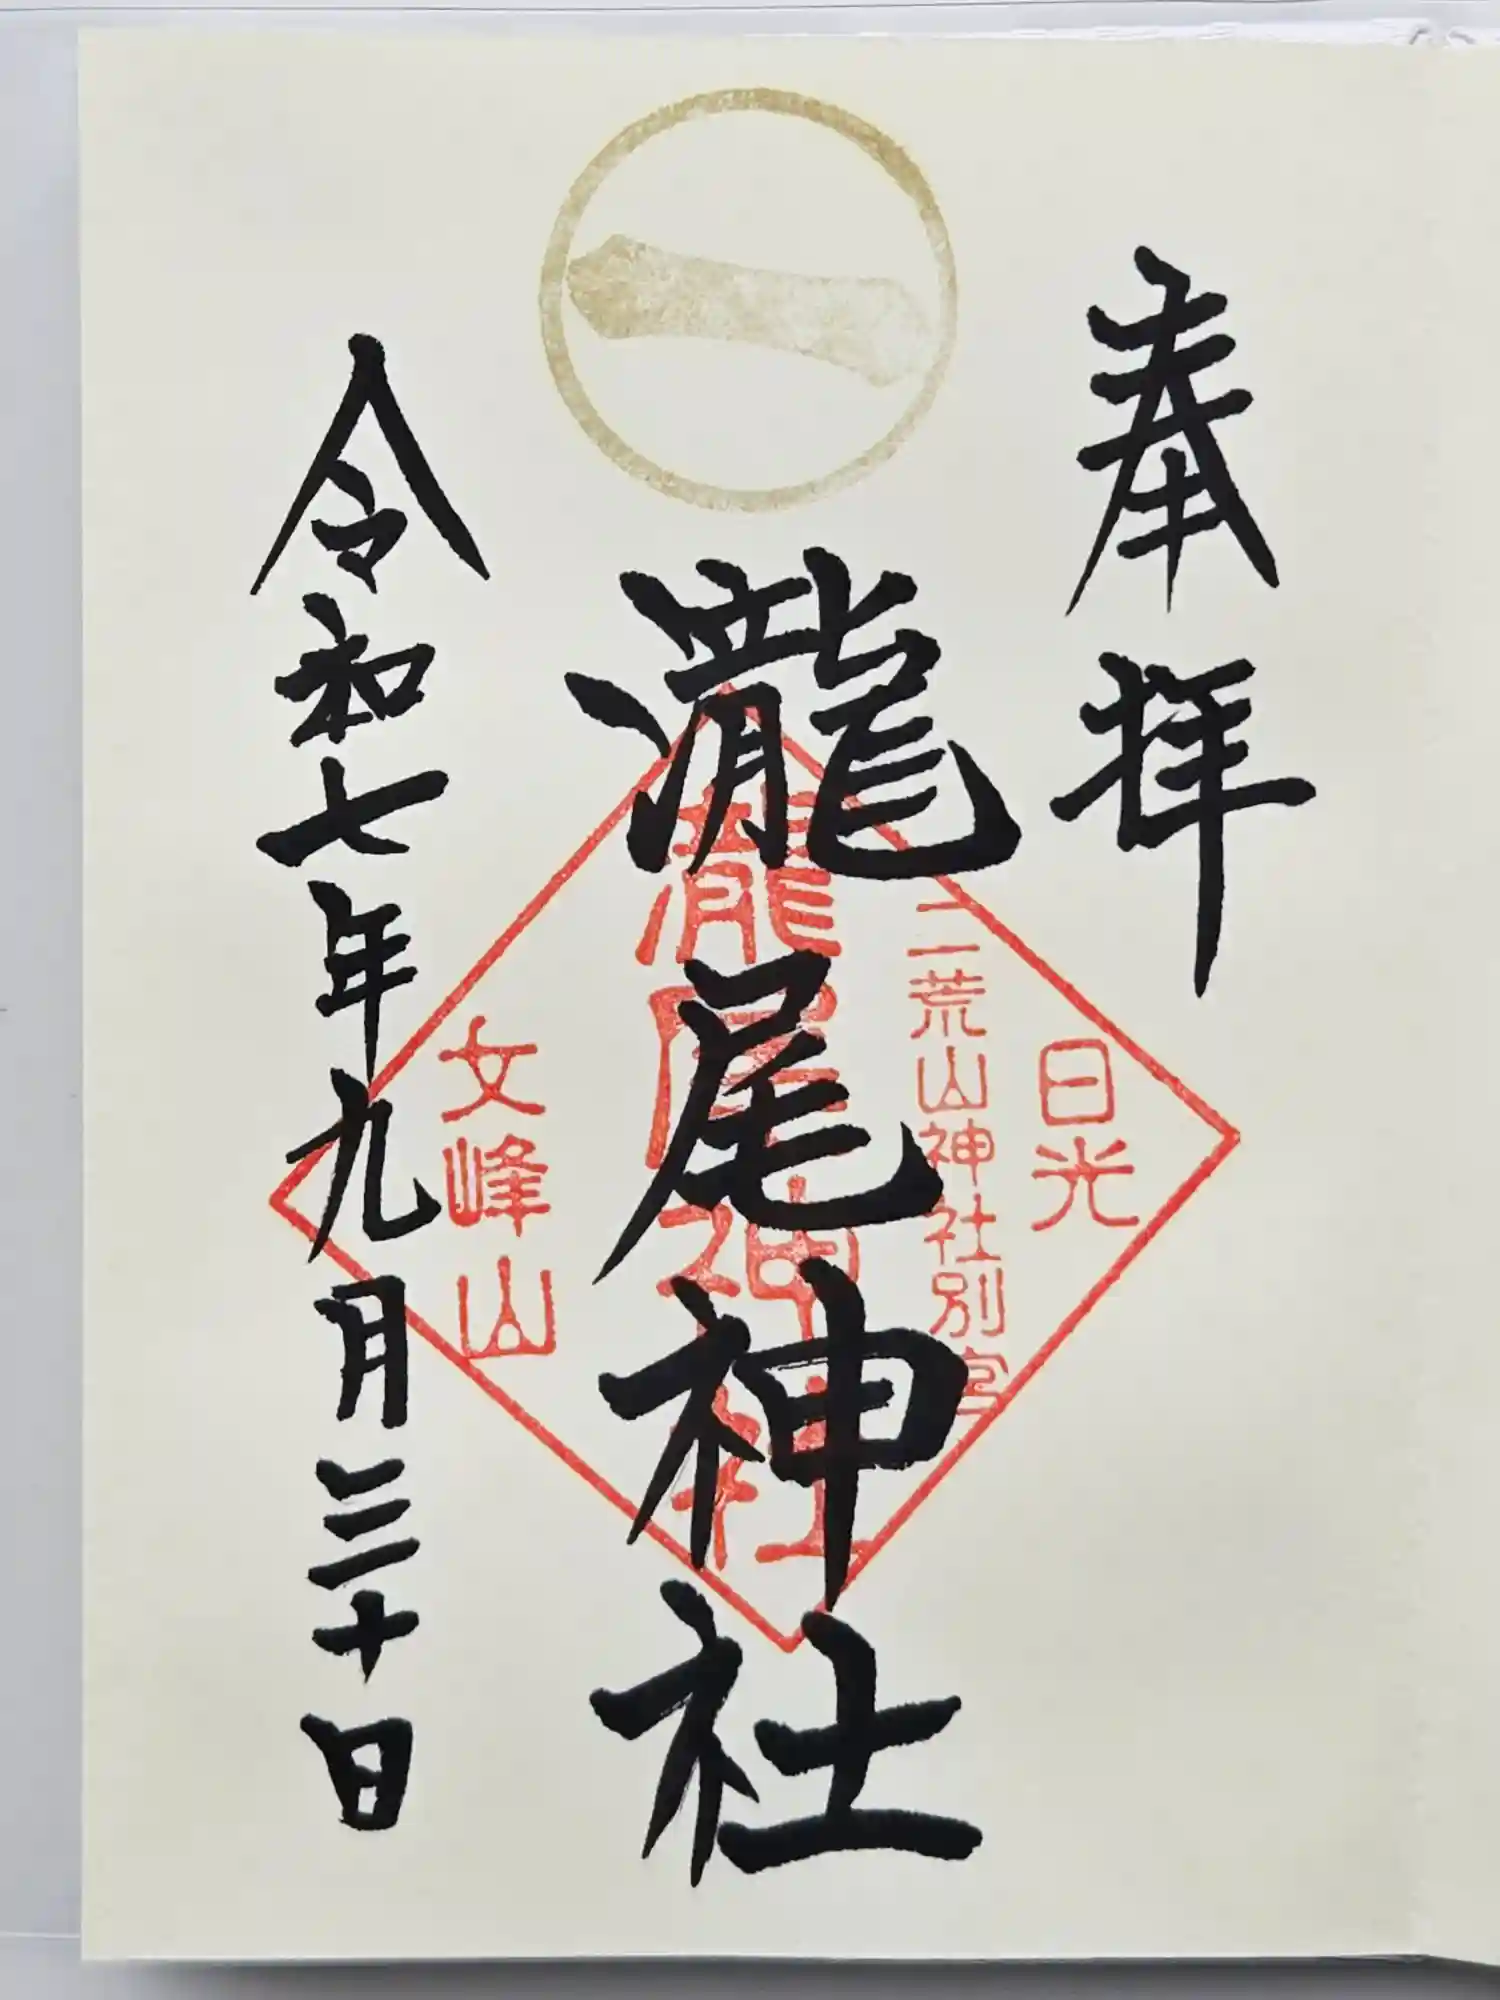 奉拝
一
瀧尾神社
令和七年九月三十日
日光
二荒山神社別宮
瀧尾神社
女峰山